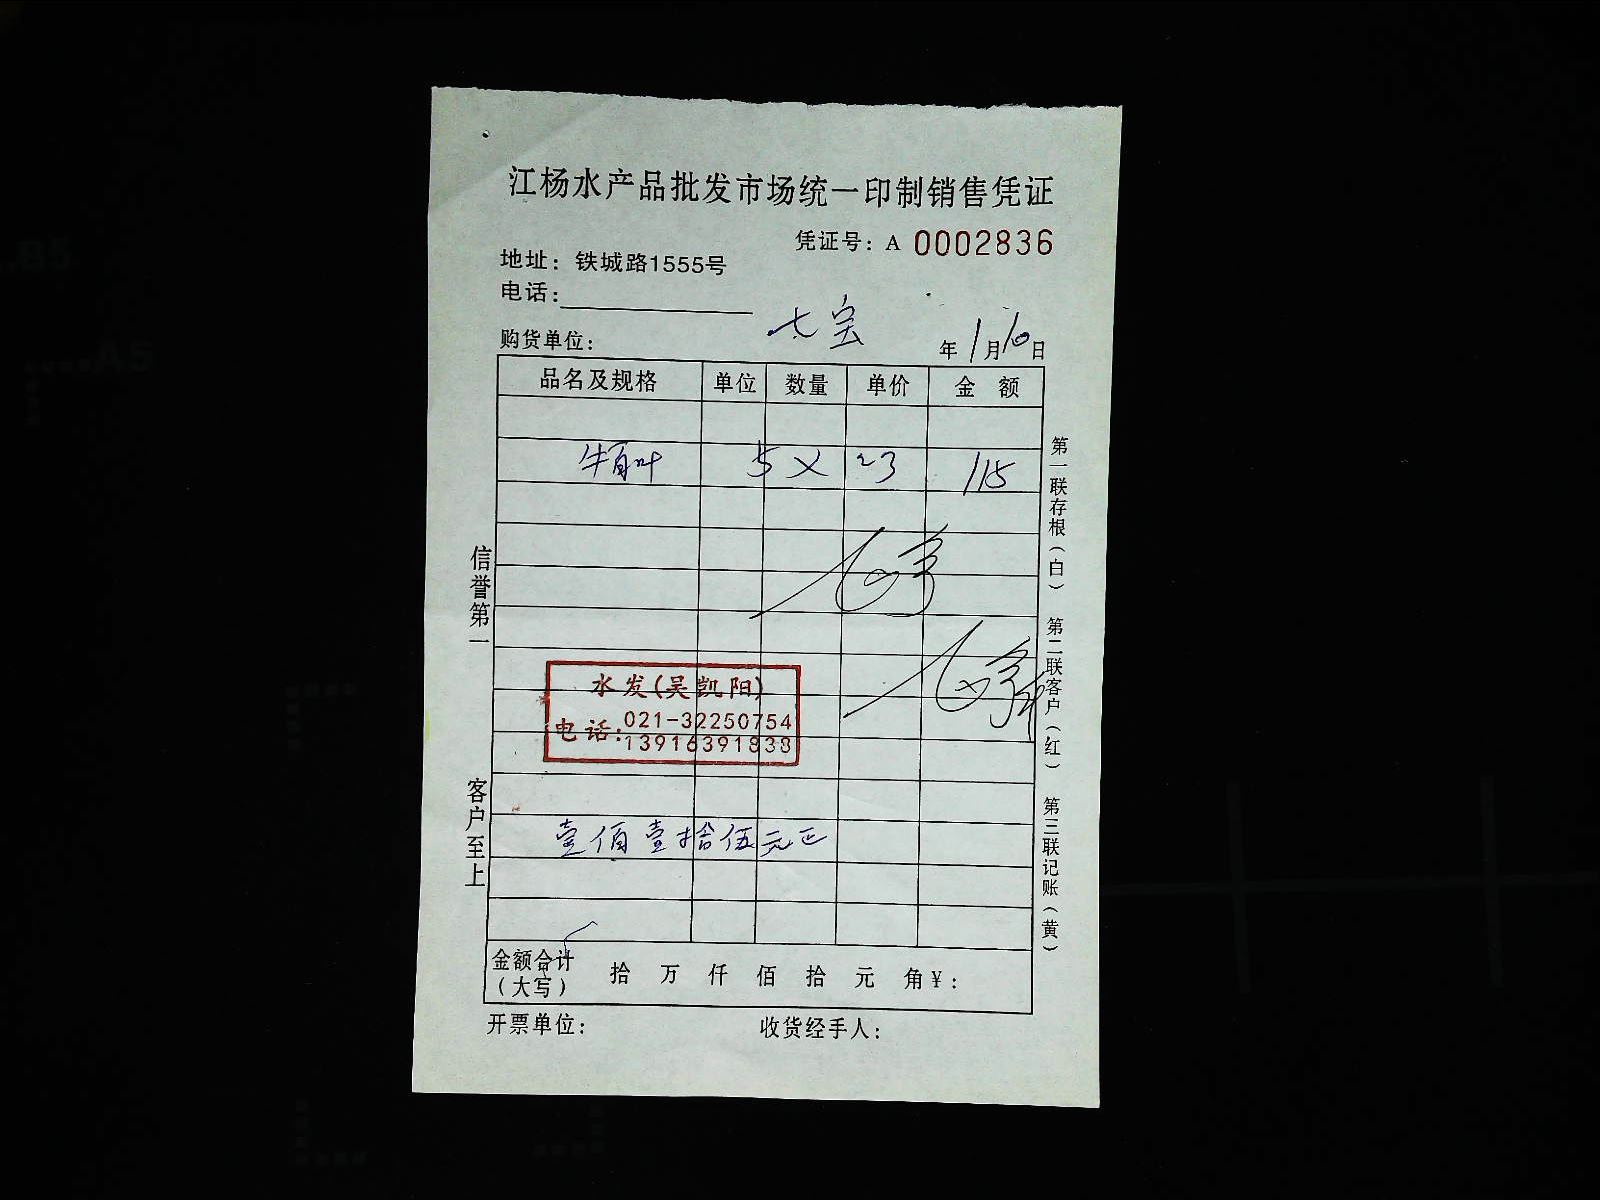 江杨水产品批发市场统一印制销售凭证
凭证号：A 0002836
地址：铁城路1555号
电话：
购货单位： 七宝 年 1月10日
品名及规格 单位 数量 单价 金 额
牛百叶 5 × 23 115
水发(吴凯阳)
电话：021-32250754
13916391838
壹佰壹拾伍元正
金额合计（大写） 拾 万 仟 佰 拾 元 角¥：
开票单位： 收货经手人：
信誉第一
客户至上
第一联存根（白） 第二联客户（红） 第三联记账（黄）